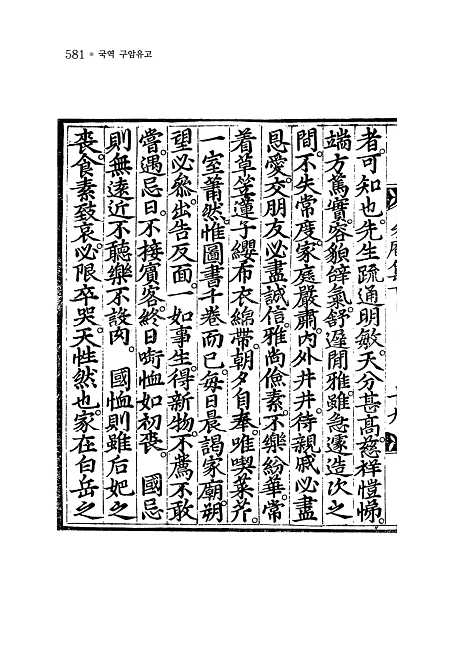 581 • 국역 구암유고
者。可知也。先生疏通明敏。天分甚高。慈祥愷悌。
端方篤實。容貌辭氣。舒遲閒雅。雖急遽造次之
間。不失常度。家庭嚴肅。內外井井。待親戚必盡
恩愛。交朋友必盡誠信。雅尚儉素。不樂紛華。常
着草笠蓮子纓布衣綿帶。朝夕自奉。唯喫菜芥。
一室蕭然。惟圖書千卷而已。每日晨謁家廟。朔
望必參。出告反面。一如事生。得新物。不薦不敢
嘗。遇忌日。不接賓客。終日嘶恤如初喪。 國忌
則無遠近不聽樂不設肉。 國恤則雖后妃之
喪。食素致哀。必限卒哭。天性然也。家在白岳之